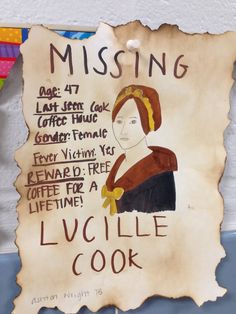 MISSING
Age: 47
Last Seen: Cook
Coffee House
Gender: Female
Fever Victim: Yes
REWARD: FREE
COFFEE FOR A
LIFETIME!
LUCILLE
COOK